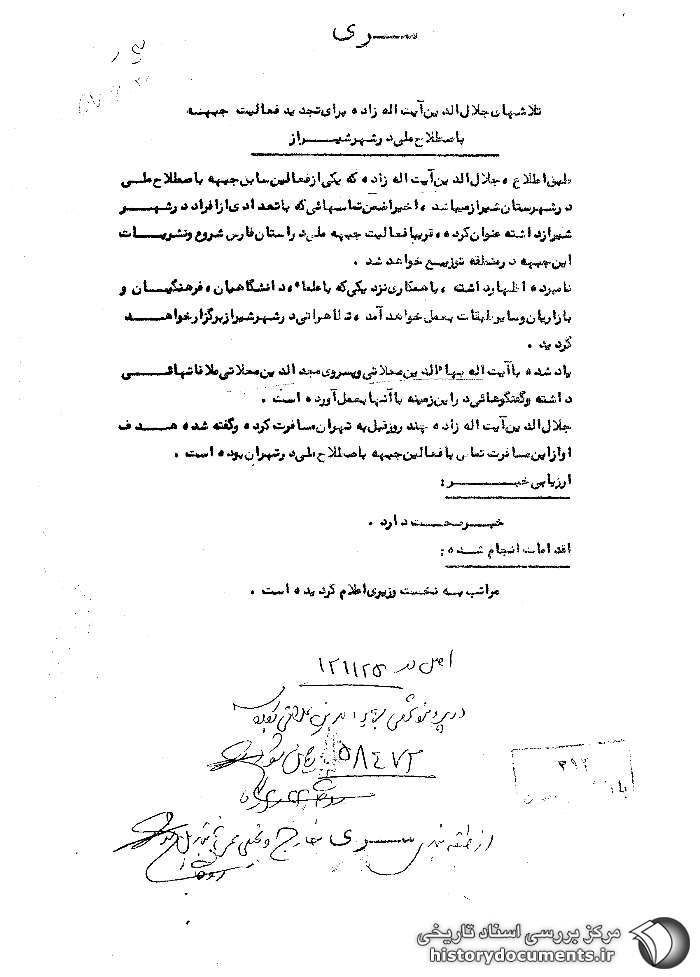 ســـری
تلاشهای جلال الدین آیت اله زاده برای تجدید فعالیت جبهــه
باصطلاح ملی در شهر شیـــراز
طبق اطلاع ، جلال الدین آیت اله زاده که یکی از فعالین سابق جبهه باصطلاح ملــی
در شهرستان شیراز میباشد ، اخیرا ضمن تماسهائی که با تعدادی از افراد در شهـــر
شیراز داشته عنوان کرده ، قریبا فعالیت جبهه ملی در استان فارس شروع و نشریـــات
این جبهه در منطقه توزیـع خواهد شد .
نامبرده اظهار داشته ، با همکاری نزدیکی که با علماء ، دانشگاهیان ، فرهنگیـــان و
بازاریان و سایر طبقات بعمل خواهد آمد ، تظاهراتی در شهر شیراز برگزار خواهـــد
گردید .
یاد شده با آیت اله بهاءالدین محلاتی و پسر وی مجد الدین محلاتی ملاقاتهائـــی
داشته و گفتگوهائی در این زمینه با آنها بعمل آورده است .
جلال الدین آیت اله زاده چند روز قبل به تهران مسافرت کرده و گفته شده هـــدف
او از این مسافرت تماس با فعالین جبهه باصطلاح ملی در تهران بوده است .
ارزیابی خبـــــر :
خبـــر صحـــت دارد .
اقدامات انجام شـــده :
مراتب بـه نخست وزیری اعلام گردیده است .
اصل در ۱۲۱۱۲۵
در پرونده بهاءالدین محلاتی
۵۸۴۷۲
۲۹۲
از طبقه بندی ســـری خارج و
مرکز بررسی اسناد تاریخی
historydocuments.ir